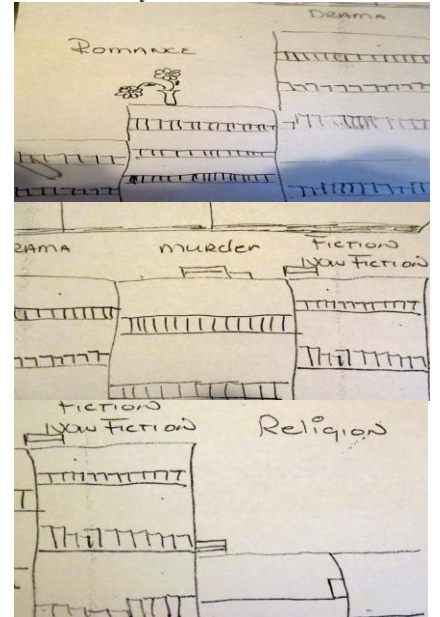 DRAMA
ROMANCE
RAMA
MURDER
FICTION
NON FICTION
FICTION
NON FICTION
Religion